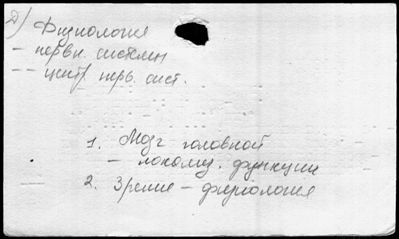 2) Физиология
- нервн. системы
- центр. нерв. сист.
1. Мозг головной
- локализ. функции
2. Зрение - физиология